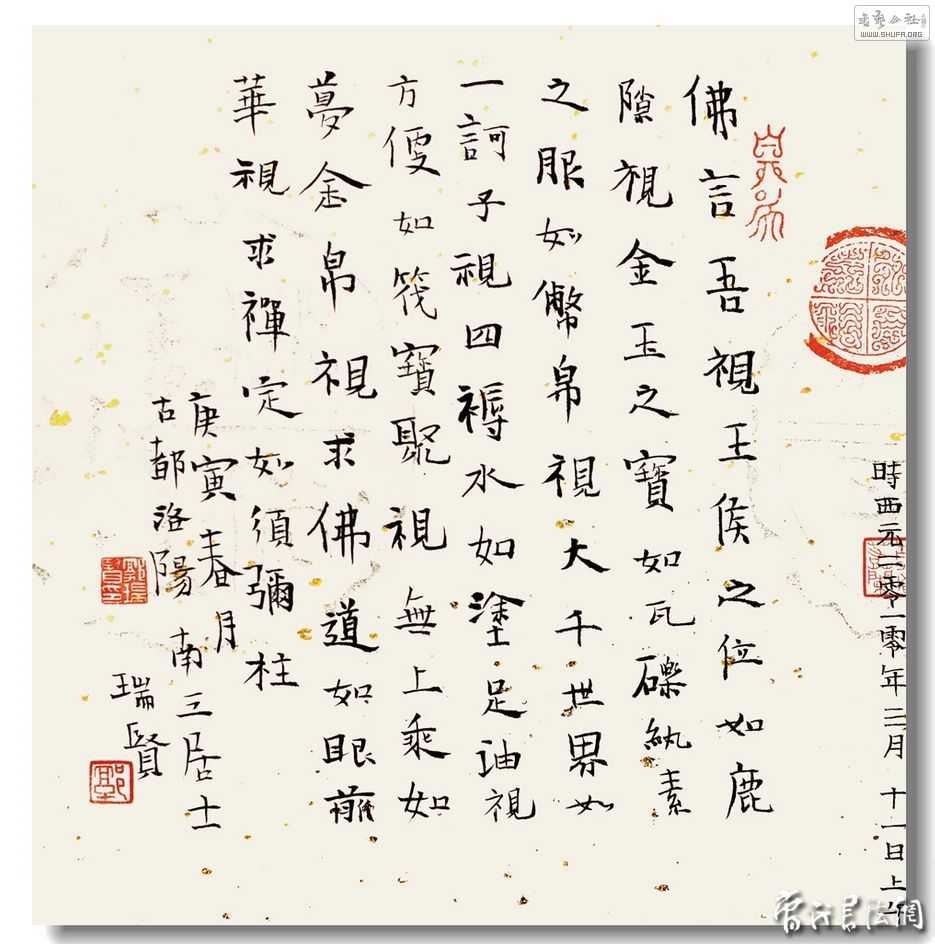 時西元二零一零年三月十一日上午
佛言吾視王侯之位如鹿
隙視金玉之寶如瓦礫紈素
之服如幣帛視大千世界如
一訶子視四褥水如塗足油視
方便如筏寶聚視無上乘如
夢金帛視求佛道如眼前
華視求禪定如須彌柱
庚寅春月
古都洛陽南三居士
瑞賢
WWW.SHUFA.ORG